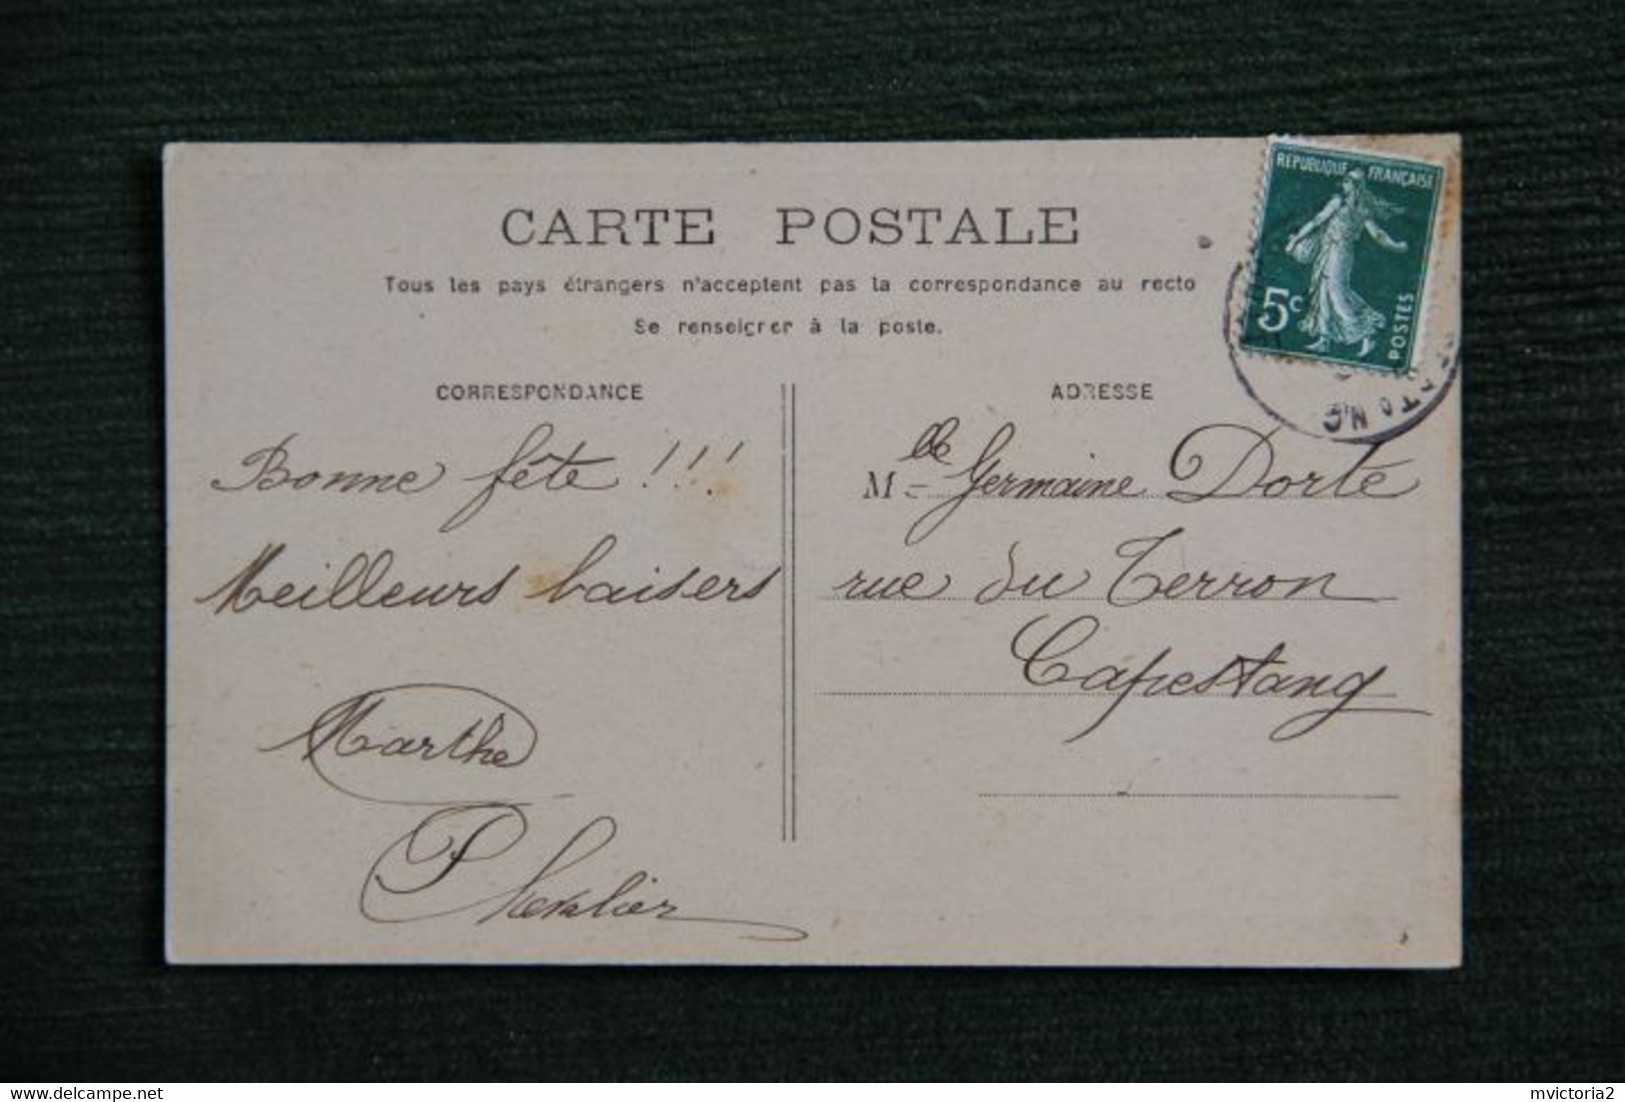 CARTE POSTALE
Tous les pays étrangers n'acceptent pas la correspondance au recto
Se renseigner à la poste.
RÉPUBLIQUE FRANÇAISE
5c
POSTES
CORRESPONDANCE
Bonne fête !!!
Meilleurs baisers
Marthe
Chevalier
ADRESSE
Mlle Germaine Dorte
rue du Terron
Capestang
delcampe.net
mvictoria2